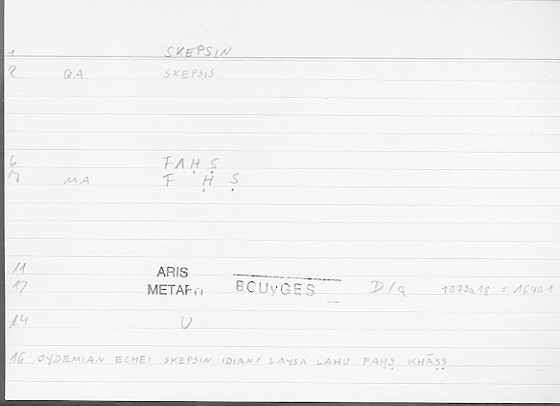 1 SKEPSIN
2 QA SKEPSIS
6 FAḤṢ
7 MA F Ḥ Ṣ
11 ARIS
12 METAPH BOUYGES D/a 1073a18 = 1640.1
14 U
16 OYDEMIAN ECHEI SKEPSIN IDIAN: LAYSA LAHU FAḤṢ KHĀṢṢ